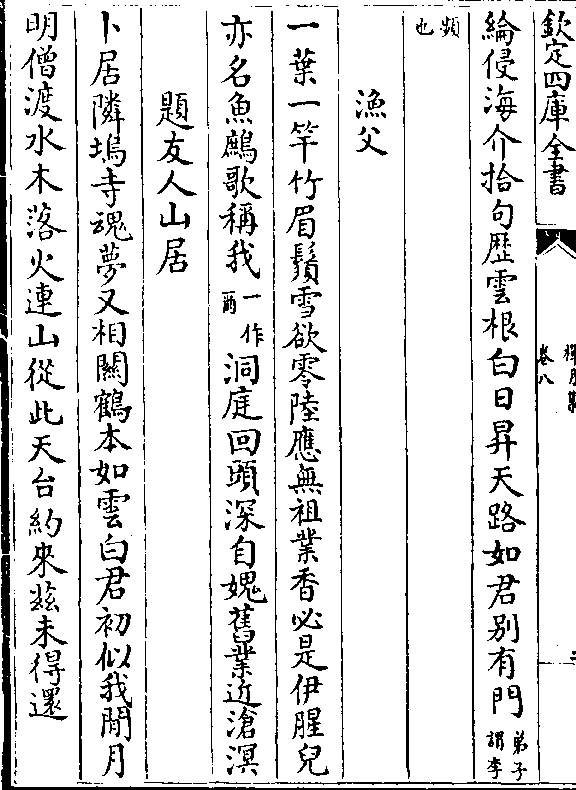 欽定四庫全書
卷八
綸侵海介拾句歷雲根白日昇天路如君別有門弟子謂李
頻也
漁父
一葉一竿竹眉鬚雪欲零陸應無祖業香必是伊腥兒
亦名魚鷁歌稱我一作爾洞庭回頭深自媿舊業近滄溟
題友人山居
卜居隣塢寺魂夢又相關鶴本如雲白君初似我閒月
明僧渡水木落火連山從此天台約來茲未得還